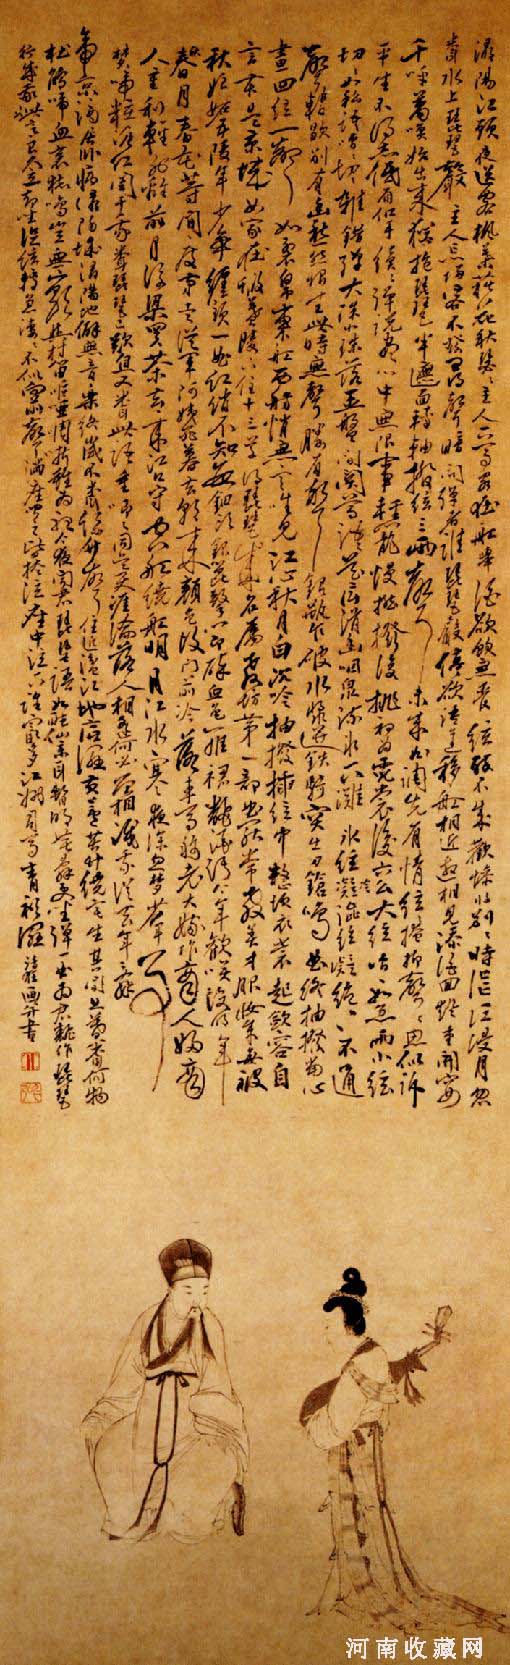 潯陽江頭夜送客楓葉荻花秋瑟瑟主人下馬客在船舉酒欲飲無管絃醉不成歡慘將別別時茫茫江浸月忽
聞水上琵琶聲主人忘歸客不發尋聲暗問彈者誰琵琶聲停欲語遲移船相近邀相見添酒回燈重開宴
千呼萬喚始出來猶抱琵琶半遮面轉軸撥絃三兩聲未成曲調先有情絃絃掩抑聲聲思似訴
平生不得志低眉信手續續彈說盡心中無限事輕攏慢撚撥復挑初為霓裳後六么大絃嘈嘈如急雨小絃
切切如私語嘈嘈切切雜錯彈大珠小珠落玉盤間關鶯語花底滑幽咽泉流水下灘絃凝絕凝絕不通
聲暫歇別有幽愁暗恨生此時無聲勝有聲銀瓶乍破水漿迸鐵騎突出刀鎗鳴曲終抽撥當心
畫四絃一聲如裂帛東船西舫悄無言唯見江心秋月白沉吟抽撥插絃中整頓衣裳起斂容自
言本是京城女家在蝦蟇陵下住十三學得琵琶成名屬教坊第一部曲罷常教善才服妝成每被
秋娘妬五陵年少爭纏頭一曲紅綃不知數鈿頭銀篦擊節碎血色羅裙翻酒污今年歡笑復明年
秋月春花等閒度弟走從軍阿姨死暮去朝來顏色改門前冷落車馬稀老大嫁作商人婦商
人重利輕別離前月浮梁買茶去去來江口守空船繞船明月江水寒夜深忽夢少年事
夢啼粧淚紅闌干我聞琵琶已歎息又聞此語重唧唧同是天涯淪落人相逢何必曾相識我從去年辭
帝京謫居臥病潯陽城潯陽地僻無音樂終歲不聞絲竹聲住近湓江地低濕黃蘆苦竹繞宅生其間旦暮聞何物
杜鵑啼血哀猿鳴豈無山歌與村笛嘔啞嘲哳難為聽今夜聞君琵琶語如聽仙樂耳暫明莫辭更坐彈一曲為君翻作琵琶
行感我此言良久立却坐促絃絃轉急凄凄不似向前聲滿座聞之皆掩泣座中泣下誰最多江州司馬青衫濕 清狂畫并書
河南收藏网